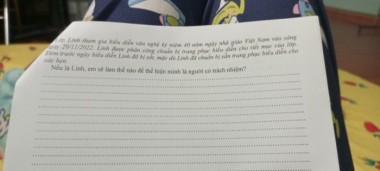 Linh tham gia biểu diễn văn nghệ kỷ niệm 40 năm ngày nhà giáo Việt Nam vào sáng
ngày 20/11/2022. Linh được phân công chuẩn bị trang phục biểu diễn cho tiết mục của lớp.
Đêm trước ngày biểu diễn Linh đã bị sốt, mặc dù Linh đã chuẩn bị sẵn trang phục biểu diễn cho
các bạn.
Nếu là Linh, em sẽ làm thế nào để thể hiện mình là người có trách nhiệm?